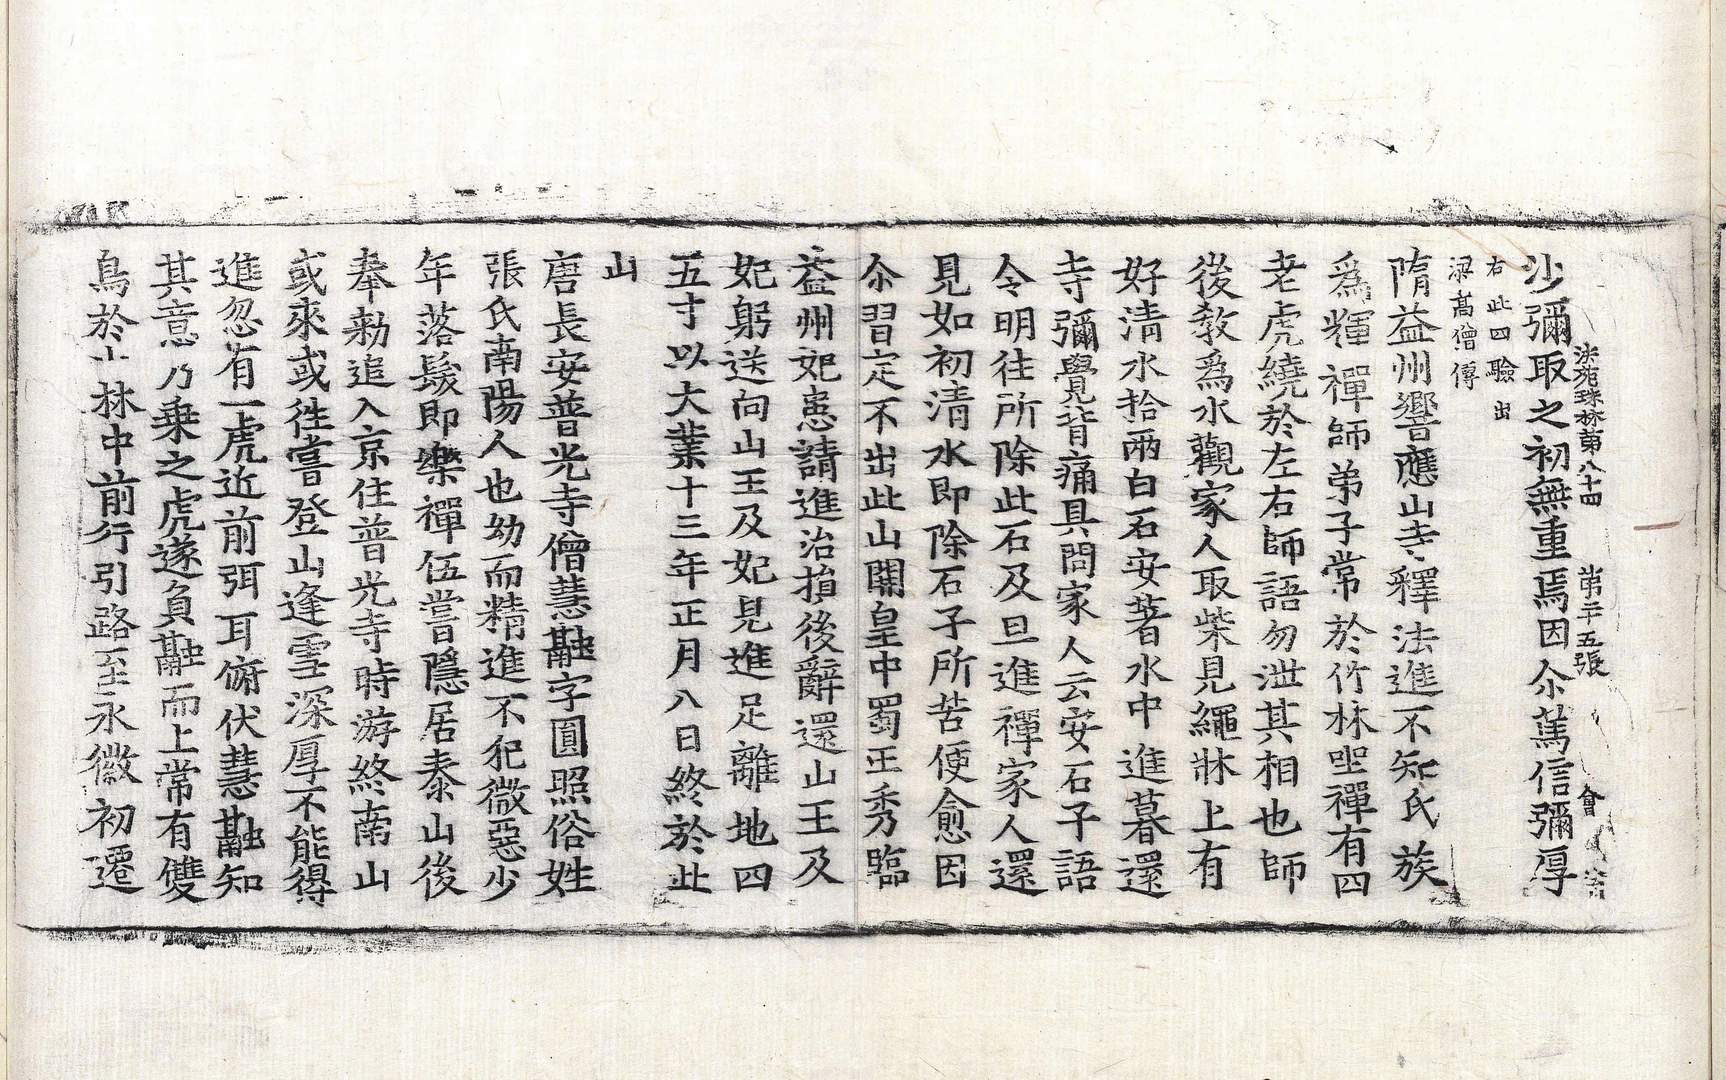 法苑珠林第八十四 第二十五張 會
沙彌取之初無重焉因尒篤信彌厚
右此四驗出
梁高僧傳
隋益州響應山寺釋法進不知氏族
爲輝禪師弟子常於竹林坐禪有四
老虎繞於左右師語勿泄其相也師
後教爲水觀家人取柴見繩牀上有
好清水拾兩白石安著水中進暮還
寺彌覺背痛具問家人云安石子語
令明往所除此石及旦進禪家人還
見如初清水即除石子所苦便愈因
尒習定不出此山開皇中蜀王秀臨
益州妃患請進治損後辭還山王及
妃躬送向山王及妃見進足離地四
五寸以大業十三年正月八日終於此
山
唐長安普光寺僧慧融字圓照俗姓
張氏南陽人也幼而精進不犯微惡少
年落髮即樂禪伍嘗隱居泰山後
奉勑追入京住普光寺時游終南山
或來或往嘗登山逢雪深厚不能得
進忽有一虎近前弭耳俯伏慧融知
其意乃乘之虎遂負融而上常有雙
鳥於山林中前行引路至永徽初遷